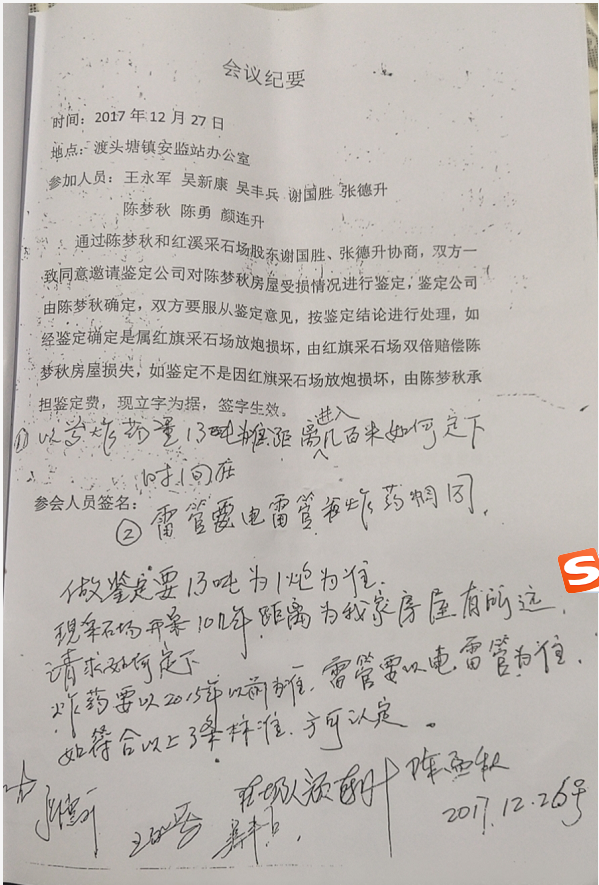 会议纪要
时间：2017年12月27日
地点：渡头塘镇安监站办公室
参加人员：王永军 吴新康 吴丰兵 谢国胜 张德升
陈梦秋 陈勇 颜连升
通过陈梦秋和红溪采石场股东谢国胜、张德升协商，双方一
致同意邀请鉴定公司对陈梦秋房屋受损情况进行鉴定，鉴定公司
由陈梦秋确定，双方要服从鉴定意见，按鉴定结论进行处理，如
经鉴定确定是属红旗采石场放炮损坏，由红旗采石场双倍赔偿陈
梦秋房屋损失，如鉴定不是因红旗采石场放炮损坏，由陈梦秋承
担鉴定费，现立字为据，签字生效。
进入
① 以炸药量13吨为准距离几百米如何定下
时间在
参会人员签名：
② 雷管要电雷管 炸药相同，
做鉴定要13吨为1炮为准.
现采石场开采10几年,距离为我家房屋有所远,
请求如何定下
炸药要以2015年以前为准，雷管要以电雷管为准,
如符合以上3条标准，方可认定。
陈梦秋
2017.12.26号